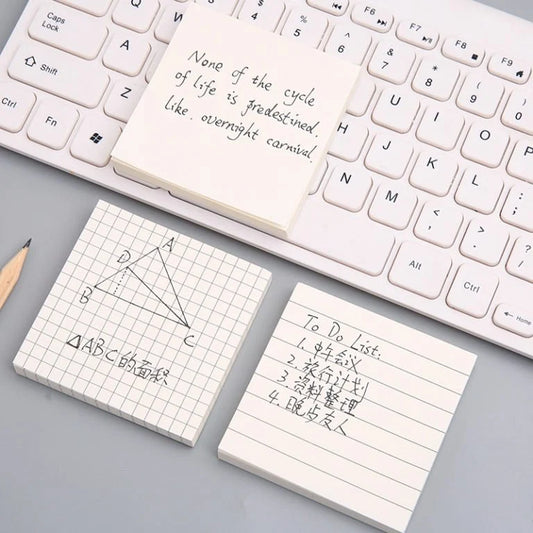 None of the cycle
of life is predestined.
like. overnight carnival.
A
D
B
C
△ABC的面积
To Do List:
1. 中午会议
2. 旅行计划
3. 资料整理
4. 晚与友人
Caps Lock
Shift
Ctrl
Fn
Q
A
Z
4
5
6
7
8
9
0
&
*
(
)
^
%
$
F6
F7
F8
F9
T
Y
U
I
O
P
J
K
L
N
M
<
,
>
.
?
/
:
;
Alt
Ctrl
Home